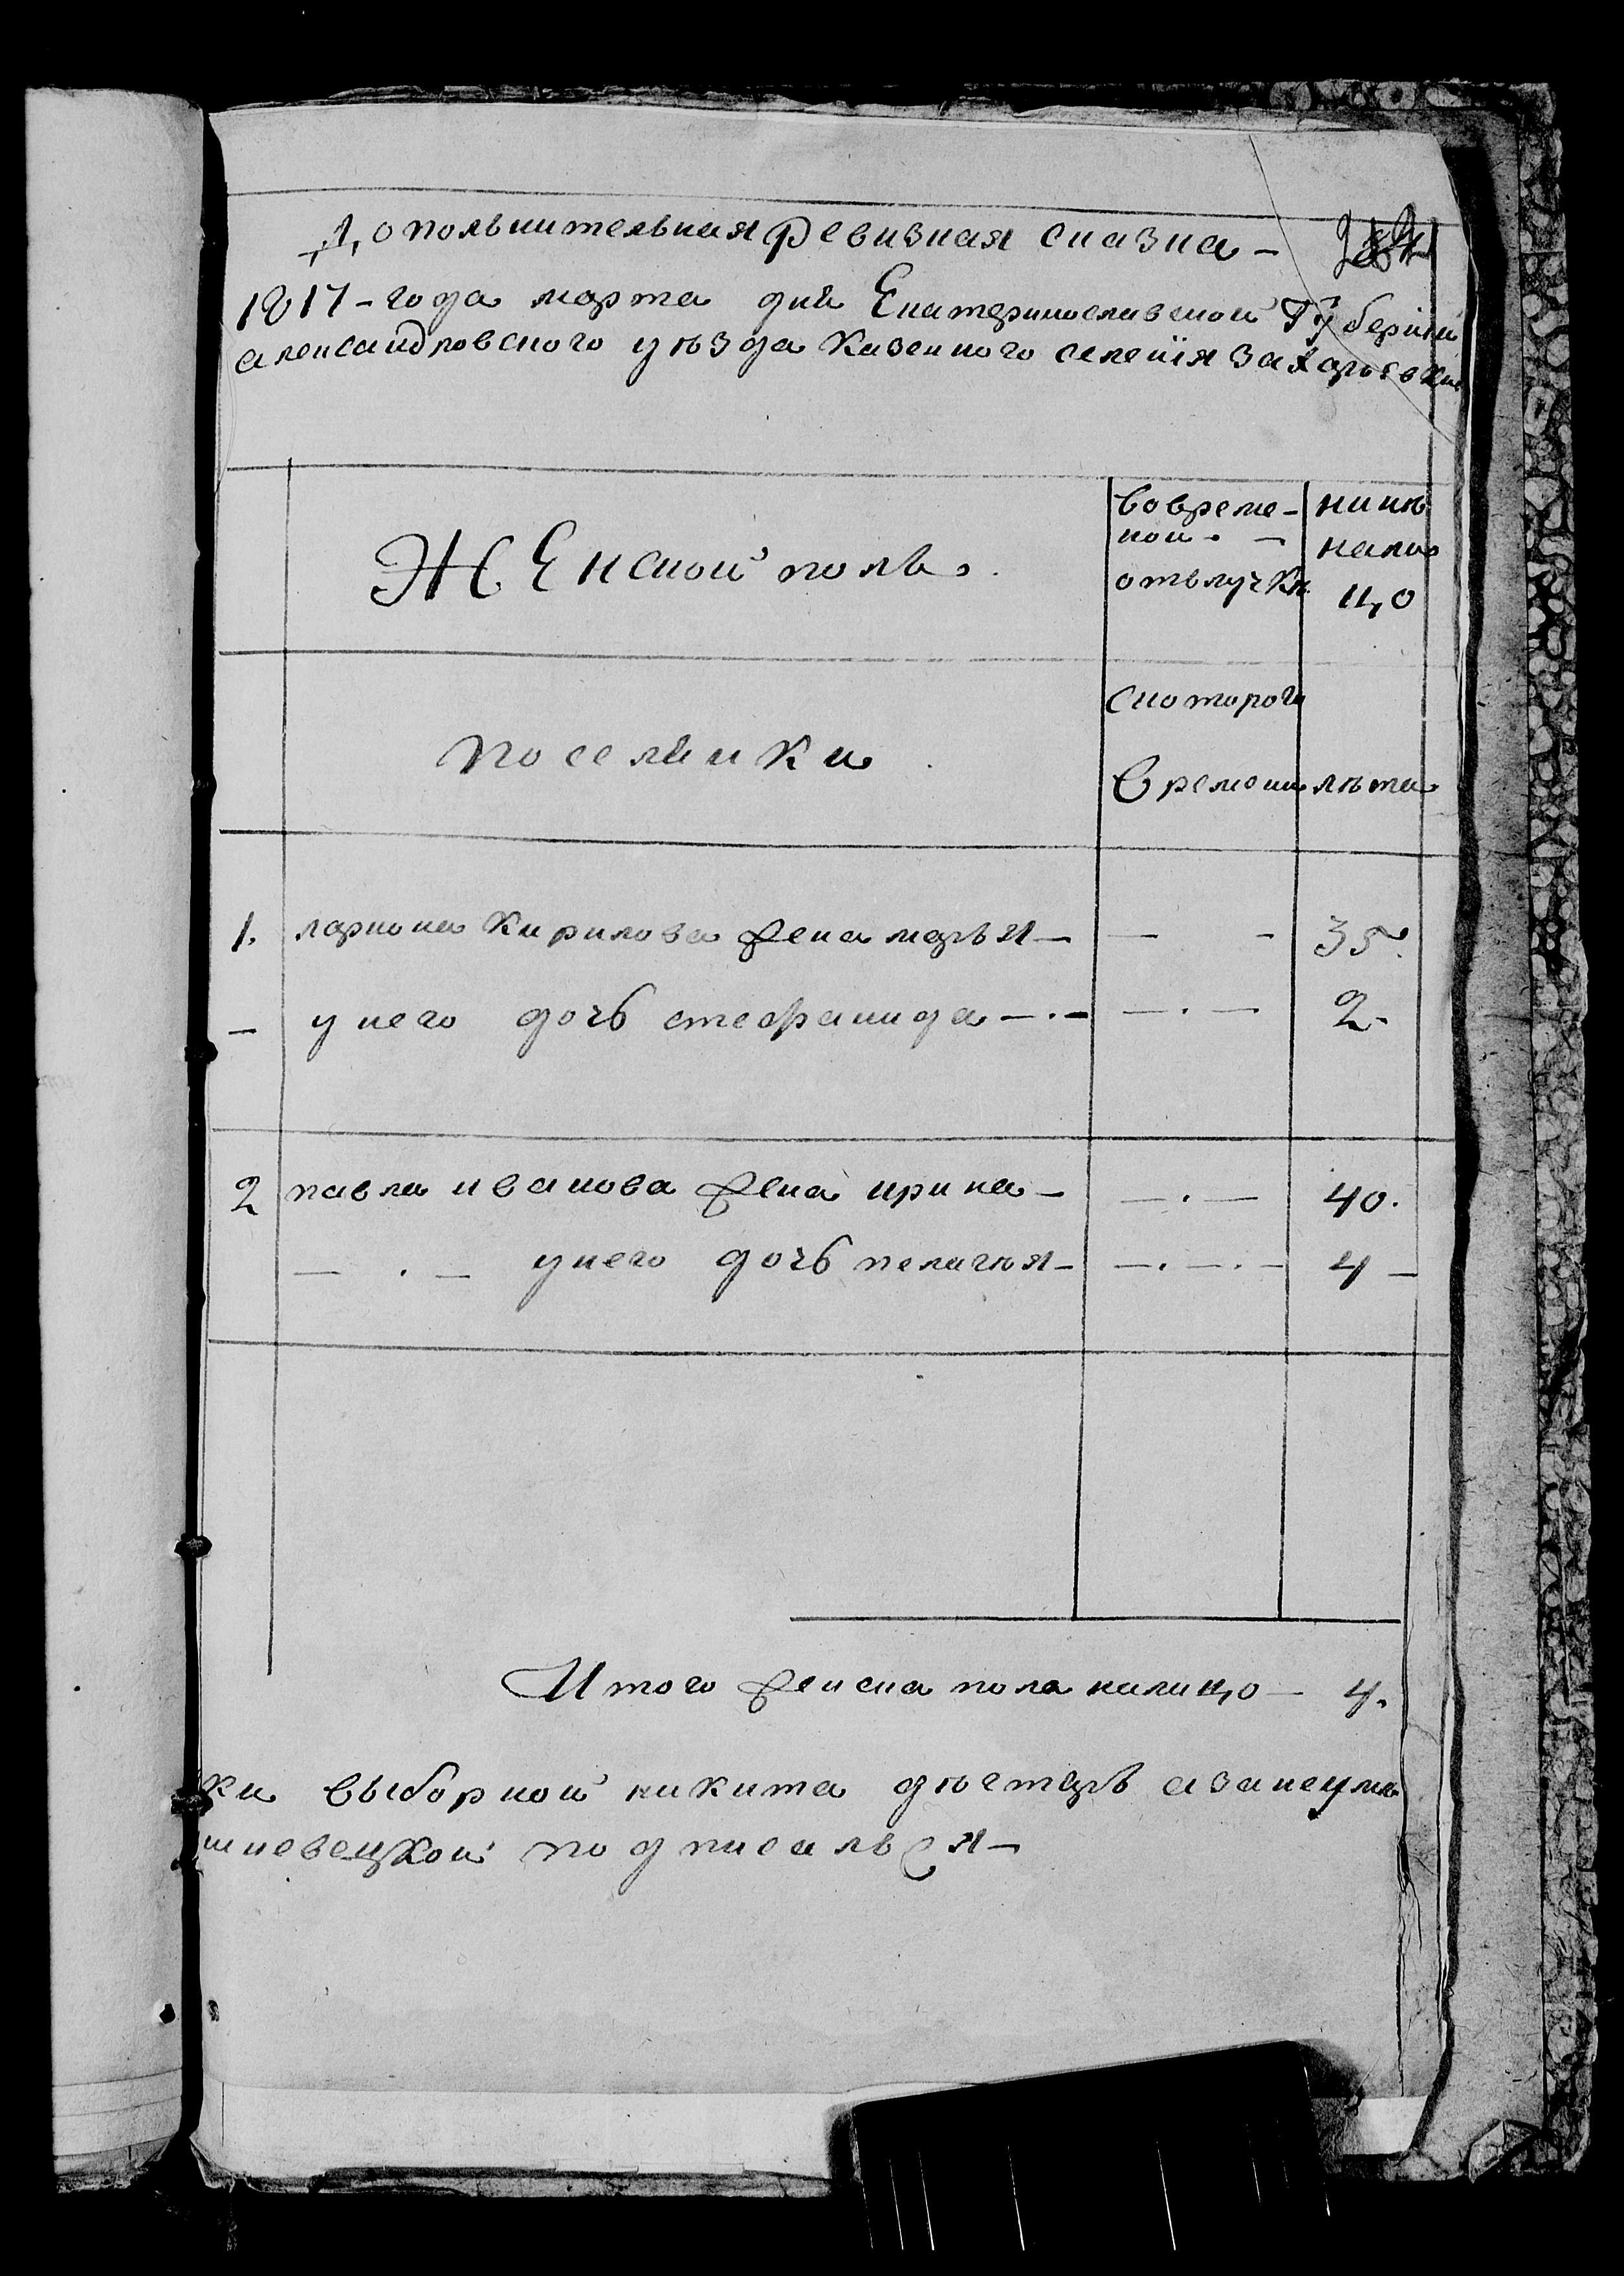 Дополънительная ревизная сказка –
1817 – года марта дня Екатеринославской Губернии
александровского уѣзда казенного селенія захарьевки
Женской полъ.
вовреме– ной отълучкѣ
нинѣ нали цо
поселянки
скоторого времени
лѣта
1. лариона кирилова жена марья – – – 35.
– у него дочь стефанида – . – – . – 2 –
2 павла иванова жена ирина – – . – 40.
– . – унего дочь пелагѣя – – . – . – 4 –
Итого женска пола налицо – 4.
ки выборной никита дѣгтярь азанеумѣ
шневецкой подписался –